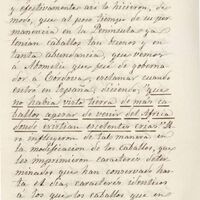 y efectivamente así lo hicieron, de
modo, que al poco tiempo de su per-
manencia en la Península ya
tenían caballos tan buenos y en
tanta abundancia, que
a gobernador
a Córdova, esclamar cuando
entró en españa, diciendo, "que
no había visto tierra de más ca-
ballos apesar de venir del Africa
donde existían escelentes crías"
influyeron de tal manera en
la modificación de los caballos, que
les imprimieron caracteres deter-
minados que han conservado has-
ta el día, caracteres idénticos
a los que caballos que en